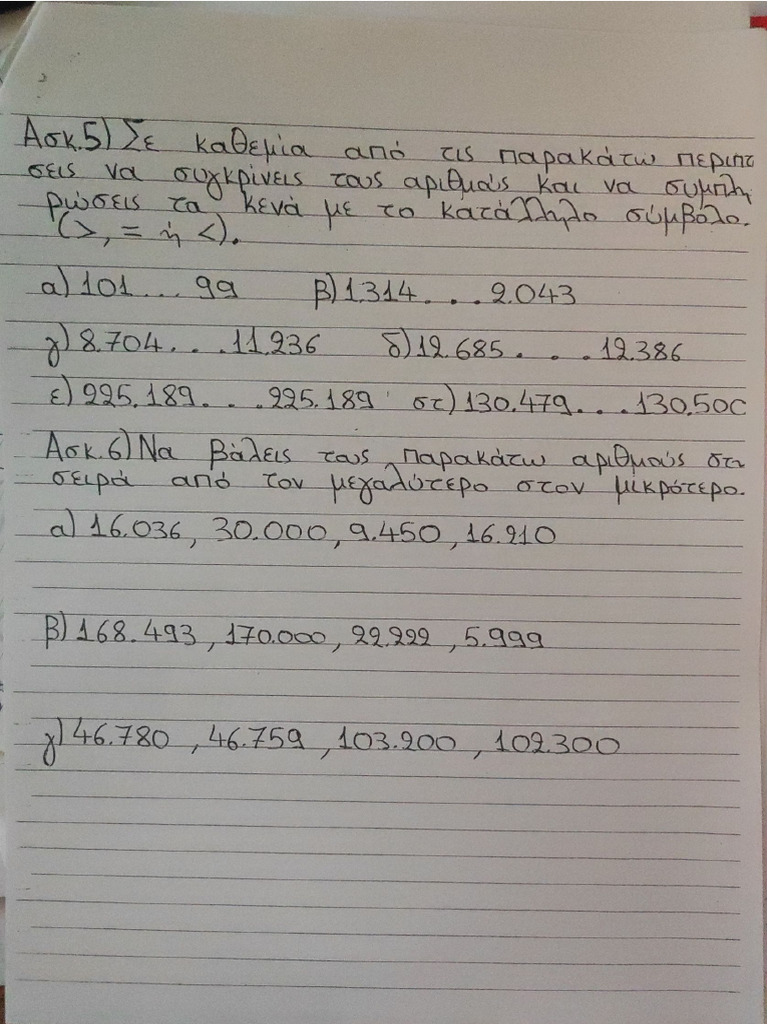 Ασκ.5) Σε καθεμία από τις παρακάτω περιπτ
σεις να συγκρίνεις τους αριθμούς και να συμπλη
ρώσεις τα κενά με το κατάλληλο σύμβολο.
(>, = ή <).
α) 101 ... 99 β) 1.314 ... 2.043
γ) 8.704 ... 11.236 δ) 12.685 ... 12.386
ε) 225.189 ... 225.189 στ) 130.479 ... 130.500
Ασκ.6) Να βάλεις τους παρακάτω αριθμούς στη
σειρά από τον μεγαλύτερο στον μικρότερο.
α) 16.036, 30.000, 9.450, 16.210
β) 168.493, 170.000, 22.222, 5.999
γ) 46.780, 46.759, 103.200, 102.300